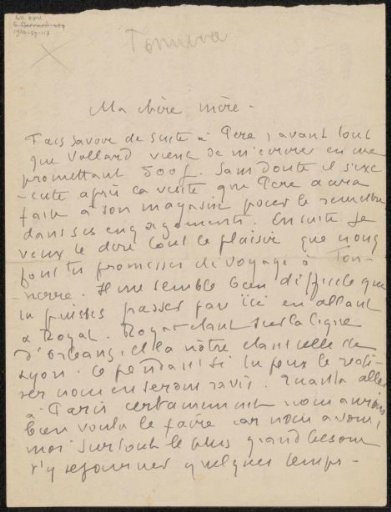 Tonnerre
Ma chère mère -
Fais savoir de suite à Père, avant tout
que Vollard vient de m'écrire en me
promettant 500 f. Sans doute il s'exé-
cute après la visite que Père aura
faite à son magasin pour le remettre
dans ses engagements. Ensuite je
veux te dire tout le plaisir que nous
font tes promesses de voyage à Ton-
nerre. Il me semble bien difficile que
tu puisses passer par ici en allant
à Royat. Royat étant sur la ligne
d'Orléans, et la nôtre étant celle de
Lyon. Cependant si tu peux le réali-
ser nous en serons ravis. Quant à aller
à Paris certainement nous aurions
bien voulu le faire car nous avons,
moi surtout le plus grand besoin
d'y retourner quelques temps -